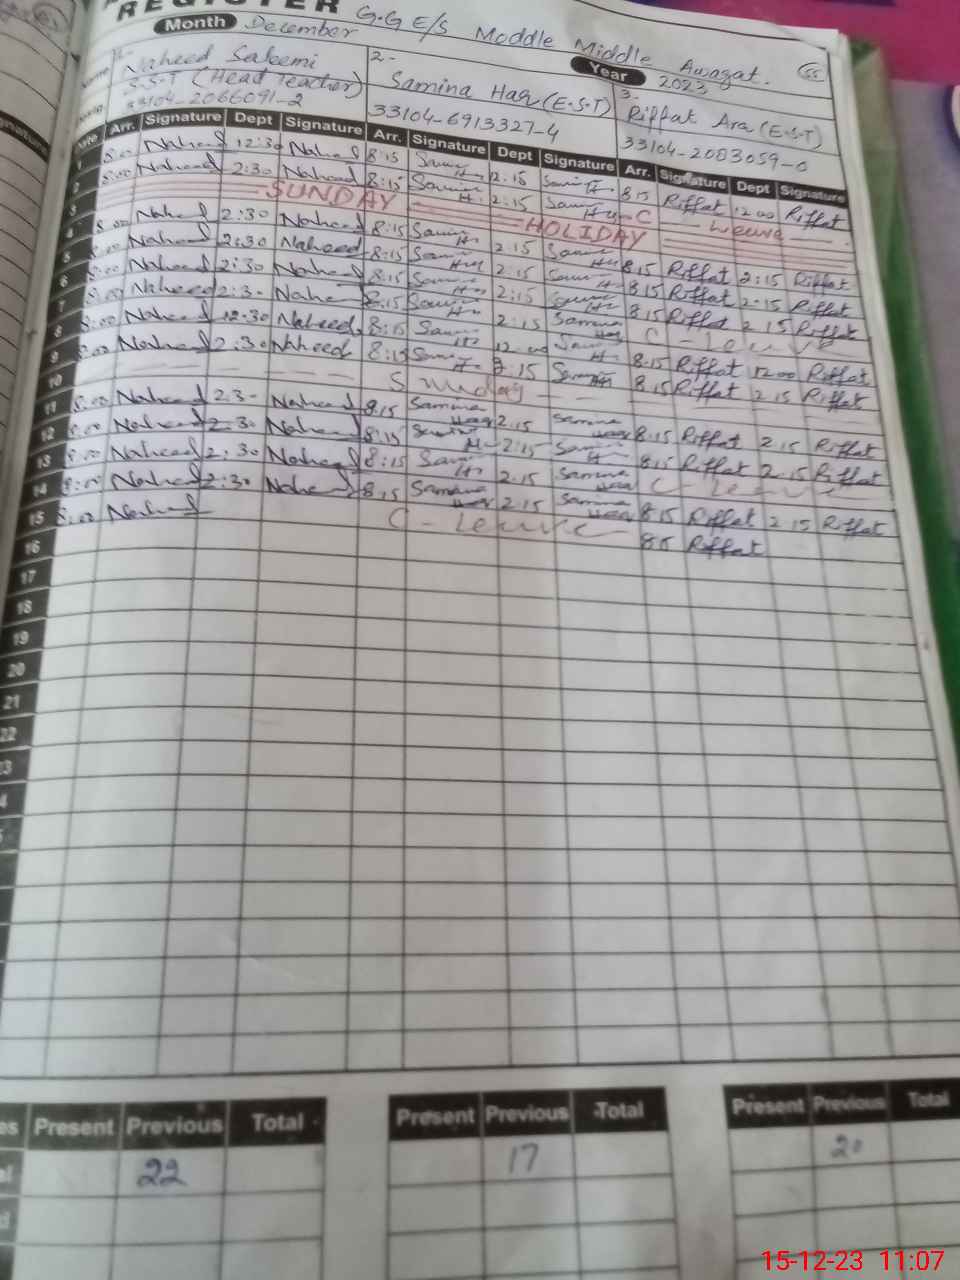 REGISTER G.G E/S Moddle Middle Awagat. 55
Month December Year 2023
1- Naheed Saleemi 2- Samina Haq (E.S.T) 3- Riffat Ara (E.S.T)
S.S.T (Head Teacher)
33104-2066091-2 33104-6913327-4 33104-2083059-0
Arr. Signature Dept Signature Arr. Signature Dept Signature Arr. Signature Dept Signature
1 8:00 Naheed 12:30 Naheed 8:15 12:15 8 15 Riffat 12 00 Riffat
2 8:00 Naheed 2:30 Naheed 8:15 2:15 C - Leave
3 SUNDAY HOLIDAY
4 8:00 Naheed 2:30 Naheed 8:15 2:15 8 15 Riffat 2:15 Riffat
5 8:00 Naheed 2:30 Naheed 8:15 2:15 8 15 Riffat 2:15 Riffat
6 8:00 Naheed 2:30 Naheed 8:15 2:15 8 15 Riffat 2 15 Riffat
7 8:00 Naheed 2:30 Naheed 8:15 2:15 Samina C - Leave
8 8:00 Naheed 12:30 Naheed 8:15 12 00 8.15 Riffat 12 00 Riffat
9 8:00 Naheed 2:30 Naheed 8:15 2:15 8.15 Riffat 2 15 Riffat
10 Sunday
11 8:00 Naheed 2:30 Naheed 8.15 Samina Haq 2.15 Samina Haq 8.15 Riffat 2.15 Riffat
12 8:00 Naheed 2:30 Naheed 8:15 2:15 8.15 Riffat 2.15 Riffat
13 8:00 Naheed 2:30 Naheed 8:15 2.15 Samina Haq C - Leave
14 8:00 Naheed 2:30 Naheed 8.15 Samina Haq 2.15 Samina Haq 8.15 Riffat 2 15 Riffat
15 8:00 Naheed C - Leave 8 15 Riffat
16
17
18
19
20
21
22
Present Previous Total Present Previous Total Present Previous Total
22 17 20
15-12-23 11:07